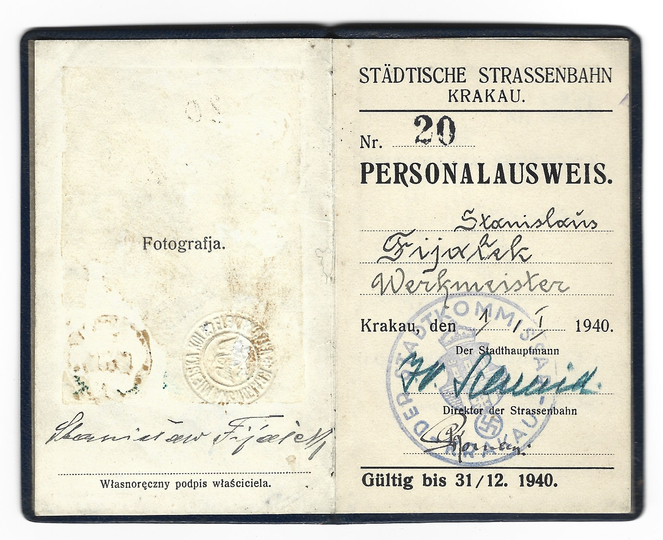 Fotografja.
Stanisław Fijałek
Własnoręczny podpis właściciela.
STÄDTISCHE STRASSENBAHN
KRAKAU.
Nr. 20
PERSONALAUSWEIS.
Stanislaus
Fijałek
Werkmeister
Krakau, den 1/I 1940.
Der Stadthauptmann
Direktor der Strassenbahn
DER STADTKOMMISSAR
KRAKAU
Gültig bis 31/12. 1940.